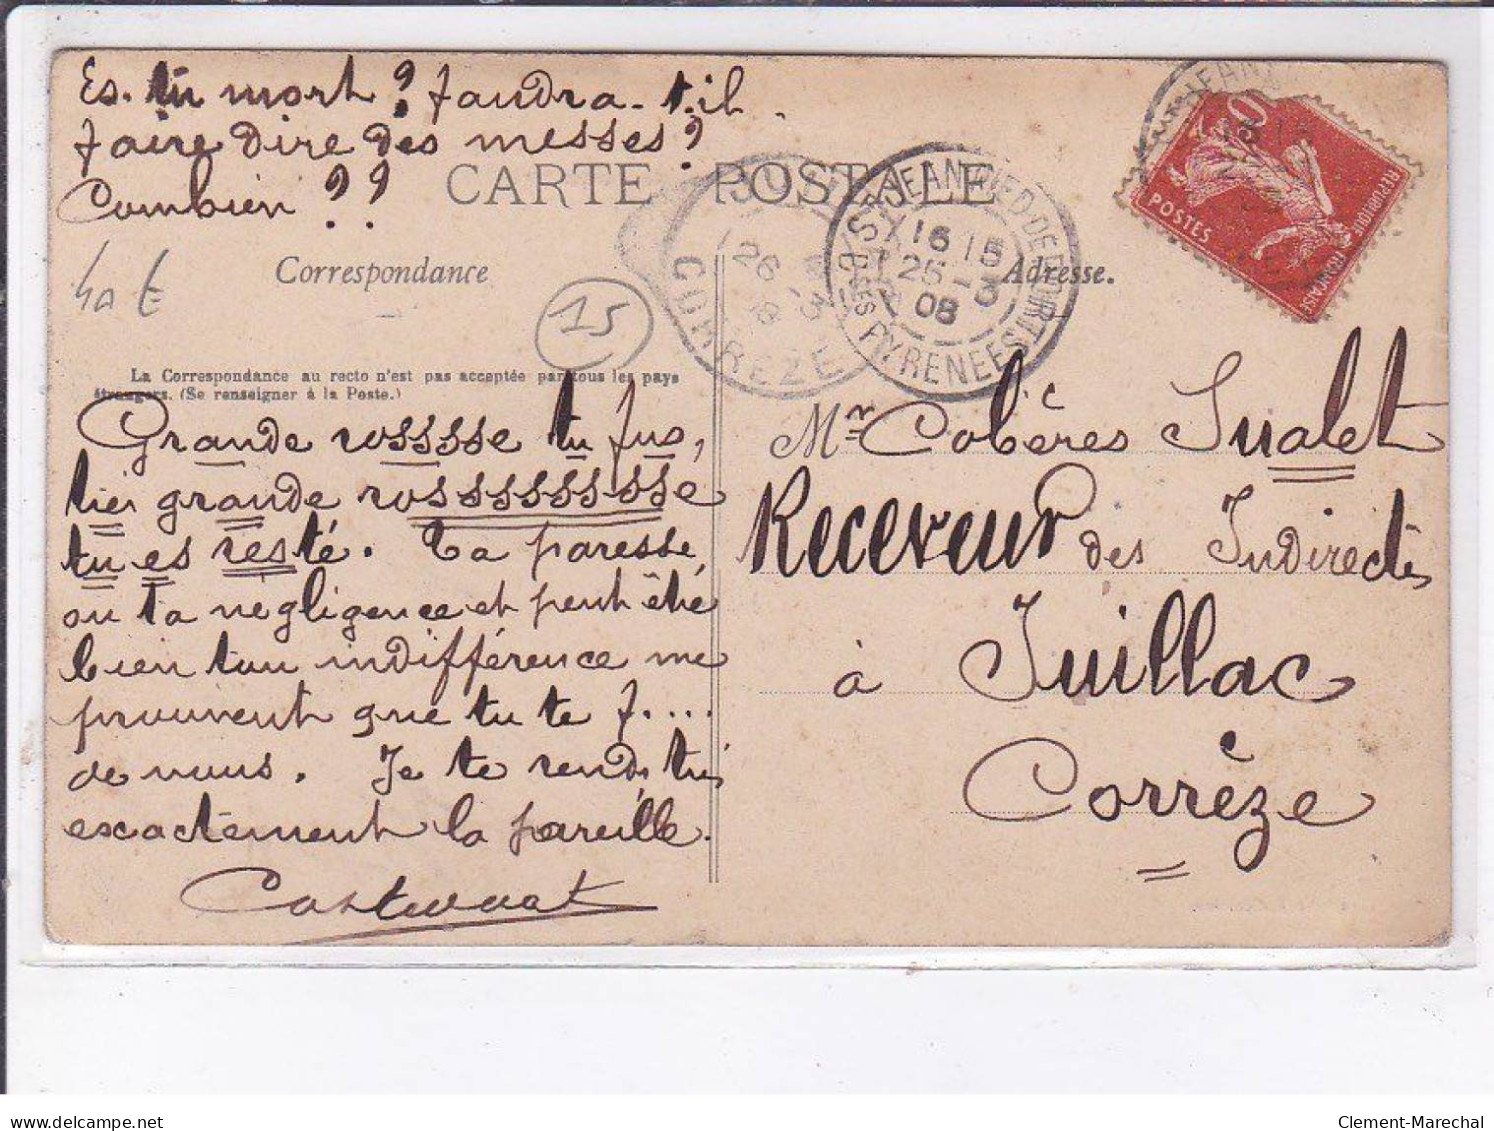 Es-tu mort? Faudra-t-il
faire dire des messes?
Combien ??
CARTE POSTALE
Correspondance
Adresse.
15
La Correspondance au recto n'est pas acceptée par tous les pays
étrangers. (Se renseigner à la Poste.)
Grande rosssse tu fus,
très grande rosssssssse
tu es resté. Ta paresse,
ou ta négligence et peut être
bien ton indifférence me
prouvent que tu te f....
de nous. Je te rends très
exactement la pareille.
Mr Cobères Sualet
Receveur des Indirectes
à Juillac
Corrèze
ST JEAN-PIED-DE-PORT
16 15
25-3
08
BSES PYRENEES
26
CORREZE
10
POSTES
REPUBLIQUE FRANÇAISE
delcampe.net
Clement-Marechal